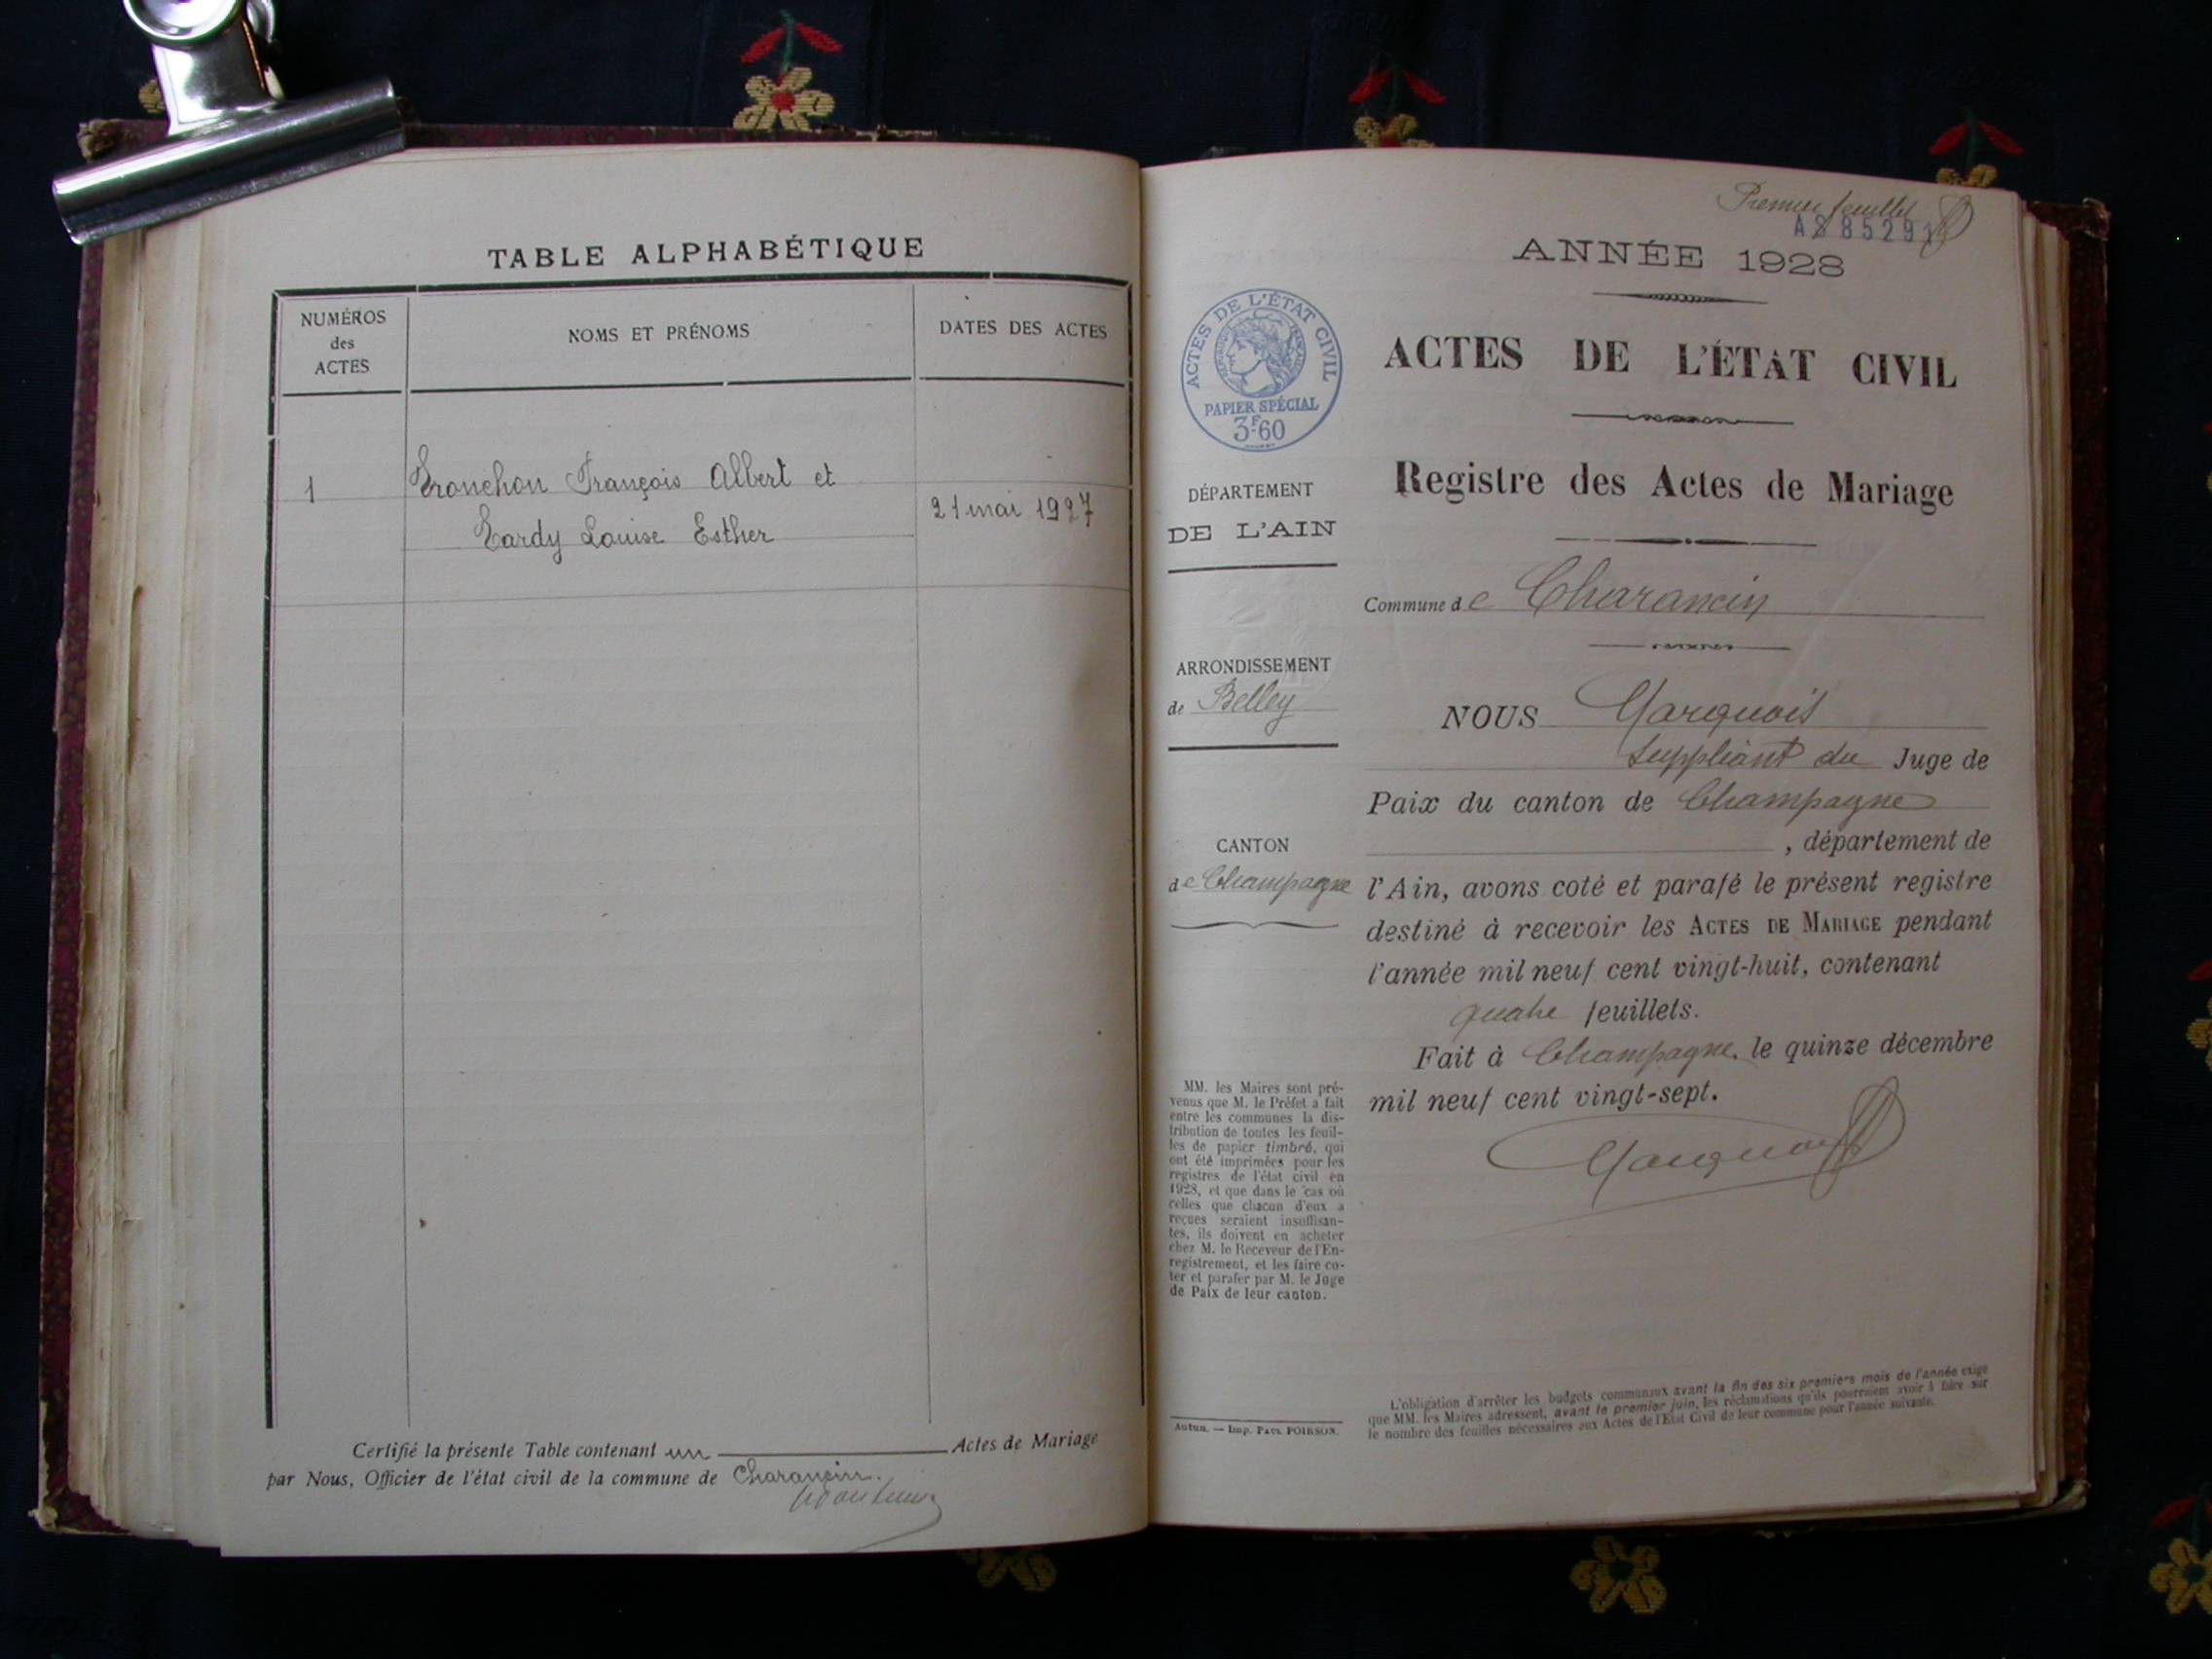 TABLE ALPHABÉTIQUE
NUMÉROS
des
ACTES
NOMS ET PRÉNOMS
DATES DES ACTES
1
Tronchon François Albert et
Tardy Louise Esther
21 mai 1927
Certifié la présente Table contenant un Actes de Mariage
par Nous, Officier de l'état civil de la commune de Charancin.
Premier feuillet
ANNÉE 1928
ACTES DE L'ÉTAT CIVIL
RÉPUBLIQUE FRANÇAISE
PAPIER SPÉCIAL
3F60
ACTES DE L'ÉTAT CIVIL
Registre des Actes de Mariage
DÉPARTEMENT
DE L'AIN
ARRONDISSEMENT
de Belley
CANTON
de Champagne
Commune de Charancin
NOUS
Suppléant du Juge de
Paix du canton de Champagne
, département de
l'Ain, avons coté et parafé le présent registre
destiné à recevoir les ACTES DE MARIAGE pendant
l'année mil neuf cent vingt-huit, contenant
quatre feuillets.
Fait à Champagne, le quinze décembre
mil neuf cent vingt-sept.
MM. les Maires sont pré-
venus que M. le Préfet a fait
entre les communes la dis-
tribution de toutes les feuil-
les de papier timbré, qui
ont été imprimées pour les
registres de l'état civil en
1928, et que dans le cas où
celles que chacun d'eux a
reçues seraient insuffisan-
tes, ils doivent en acheter
chez M. le Receveur de l'En-
registrement, et les faire co-
ter et parafer par M. le Juge
de Paix de leur canton.
Autun. — Imp. PAUL POIRSON.
L'obligation d'arrêter les budgets communaux avant la fin des six premiers mois de l'année exige
que MM. les Maires adressent, avant le premier juin, les réclamations qu'ils pourraient avoir à faire sur
le nombre des feuilles nécessaires aux Actes de l'État Civil de leur commune pour l'année suivante.